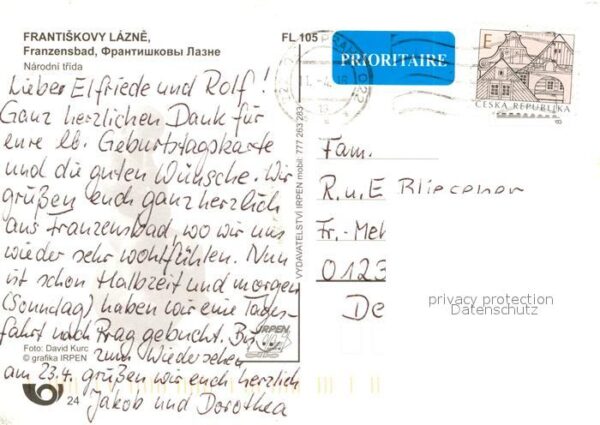 FRANTIŠKOVY LÁZNĚ,
Franzensbad, Франтишковы Лазне
Národní třída
FL 105
PRIORITAIRE
E
ČESKÁ REPUBLIKA
Lieber Elfriede und Rolf!
Ganz herzlichen Dank für
eure lb. Geburtstagskarte
und die guten Wünsche. Wir
grüßen euch ganz herzlich
aus Franzensbad, wo wir uns
wieder sehr wohlfühlen. Nun
ist schon Halbzeit und morgen
(Sonntag) haben wir eine Tages-
fahrt nach Prag gebucht. Bis
zum Wiedersehen
am 23.4. grüßen wir euch herzlich
Jakob und Dorothea
Foto: David Kurc
© grafika IRPEN
24
VYDAVATELSTVÍ IRPEN mobil: 777 263 283
IRPEN
Fam.
R. u. E
Fr.-Meh
0123
De
privacy protection
Datenschutz